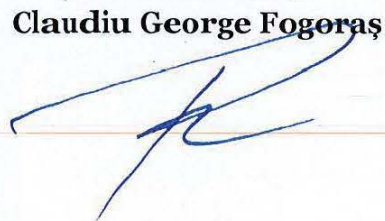 Claudiu George Fogoraş